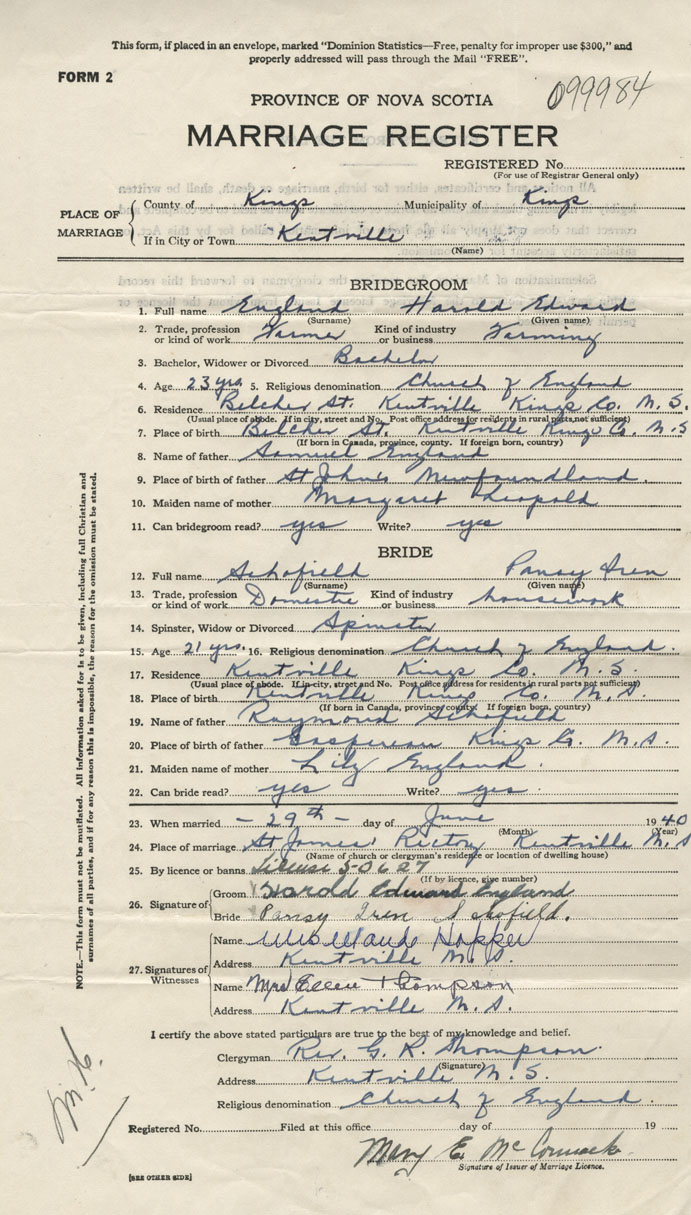 This form, if placed in an envelope, marked "Dominion Statistics—Free, penalty for improper use $300," and
properly addressed will pass through the Mail "FREE".
FORM 2
099984
PROVINCE OF NOVA SCOTIA
MARRIAGE REGISTER
REGISTERED No.
(For use of Registrar General only)
PLACE OF MARRIAGE
County of Kings Municipality of Kings
If in City or Town Kentville
(Name)
BRIDEGROOM
1. Full name England Harold Edward
(Surname) (Given name)
2. Trade, profession or kind of work Farmer Kind of industry or business Farming
3. Bachelor, Widower or Divorced Bachelor
4. Age 23 yrs 5. Religious denomination Church of England
6. Residence Belcher St. Kentville Kings Co. N.S.
(Usual place of abode. If in city, street and No. Post office address for residents in rural parts not sufficient)
7. Place of birth Belcher St. Kentville Kings Co. N.S
(If born in Canada, province, county. If foreign born, country)
8. Name of father Samuel England
9. Place of birth of father St John's Newfoundland
10. Maiden name of mother Margaret Leopold
11. Can bridegroom read? yes Write? yes
BRIDE
12. Full name Schofield Pansy Iren
(Surname) (Given name)
13. Trade, profession or kind of work Domestic Kind of industry or business housework
14. Spinster, Widow or Divorced Spinster
15. Age 21 yrs. 16. Religious denomination Church of England.
17. Residence Kentville Kings Co. N.S.
(Usual place of abode. If in city, street and No. Post office address for residents in rural parts not sufficient)
18. Place of birth Kentville Kings Co. N.S.
(If born in Canada, province, county. If foreign born, country)
19. Name of father Raymond Schofield
20. Place of birth of father Gaspereau Kings Co. N.S.
21. Maiden name of mother Lily England.
22. Can bride read? yes Write? yes.
23. When married - 29th - day of June 1940
(Month) (Year)
24. Place of marriage St James Rectory Kentville N.S
(Name of church or clergyman's residence or location of dwelling house)
25. By licence or banns License 30627
(If by licence, give number)
26. Signature of
Groom Harold Edward England
Bride Pansy Iren Schofield.
27. Signatures of Witnesses
Name Mrs Maude Hopper
Address Kentville N.S.
Name Mrs Ellen Thompson
Address Kentville N.S.
I certify the above stated particulars are true to the best of my knowledge and belief.
Clergyman Rev. G. R. Thompson.
(Signature)
Address Kentville N.S.
Religious denomination Church of England.
Registered No. Filed at this office day of 19
Mary E. McCormack
Signature of Issuer of Marriage Licence.
[SEE OTHER SIDE]
NOTE.—This form must not be mutilated. All information asked for is to be given, including full Christian and
surnames of all parties, and if for any reason this is impossible, the reason for the omission must be stated.